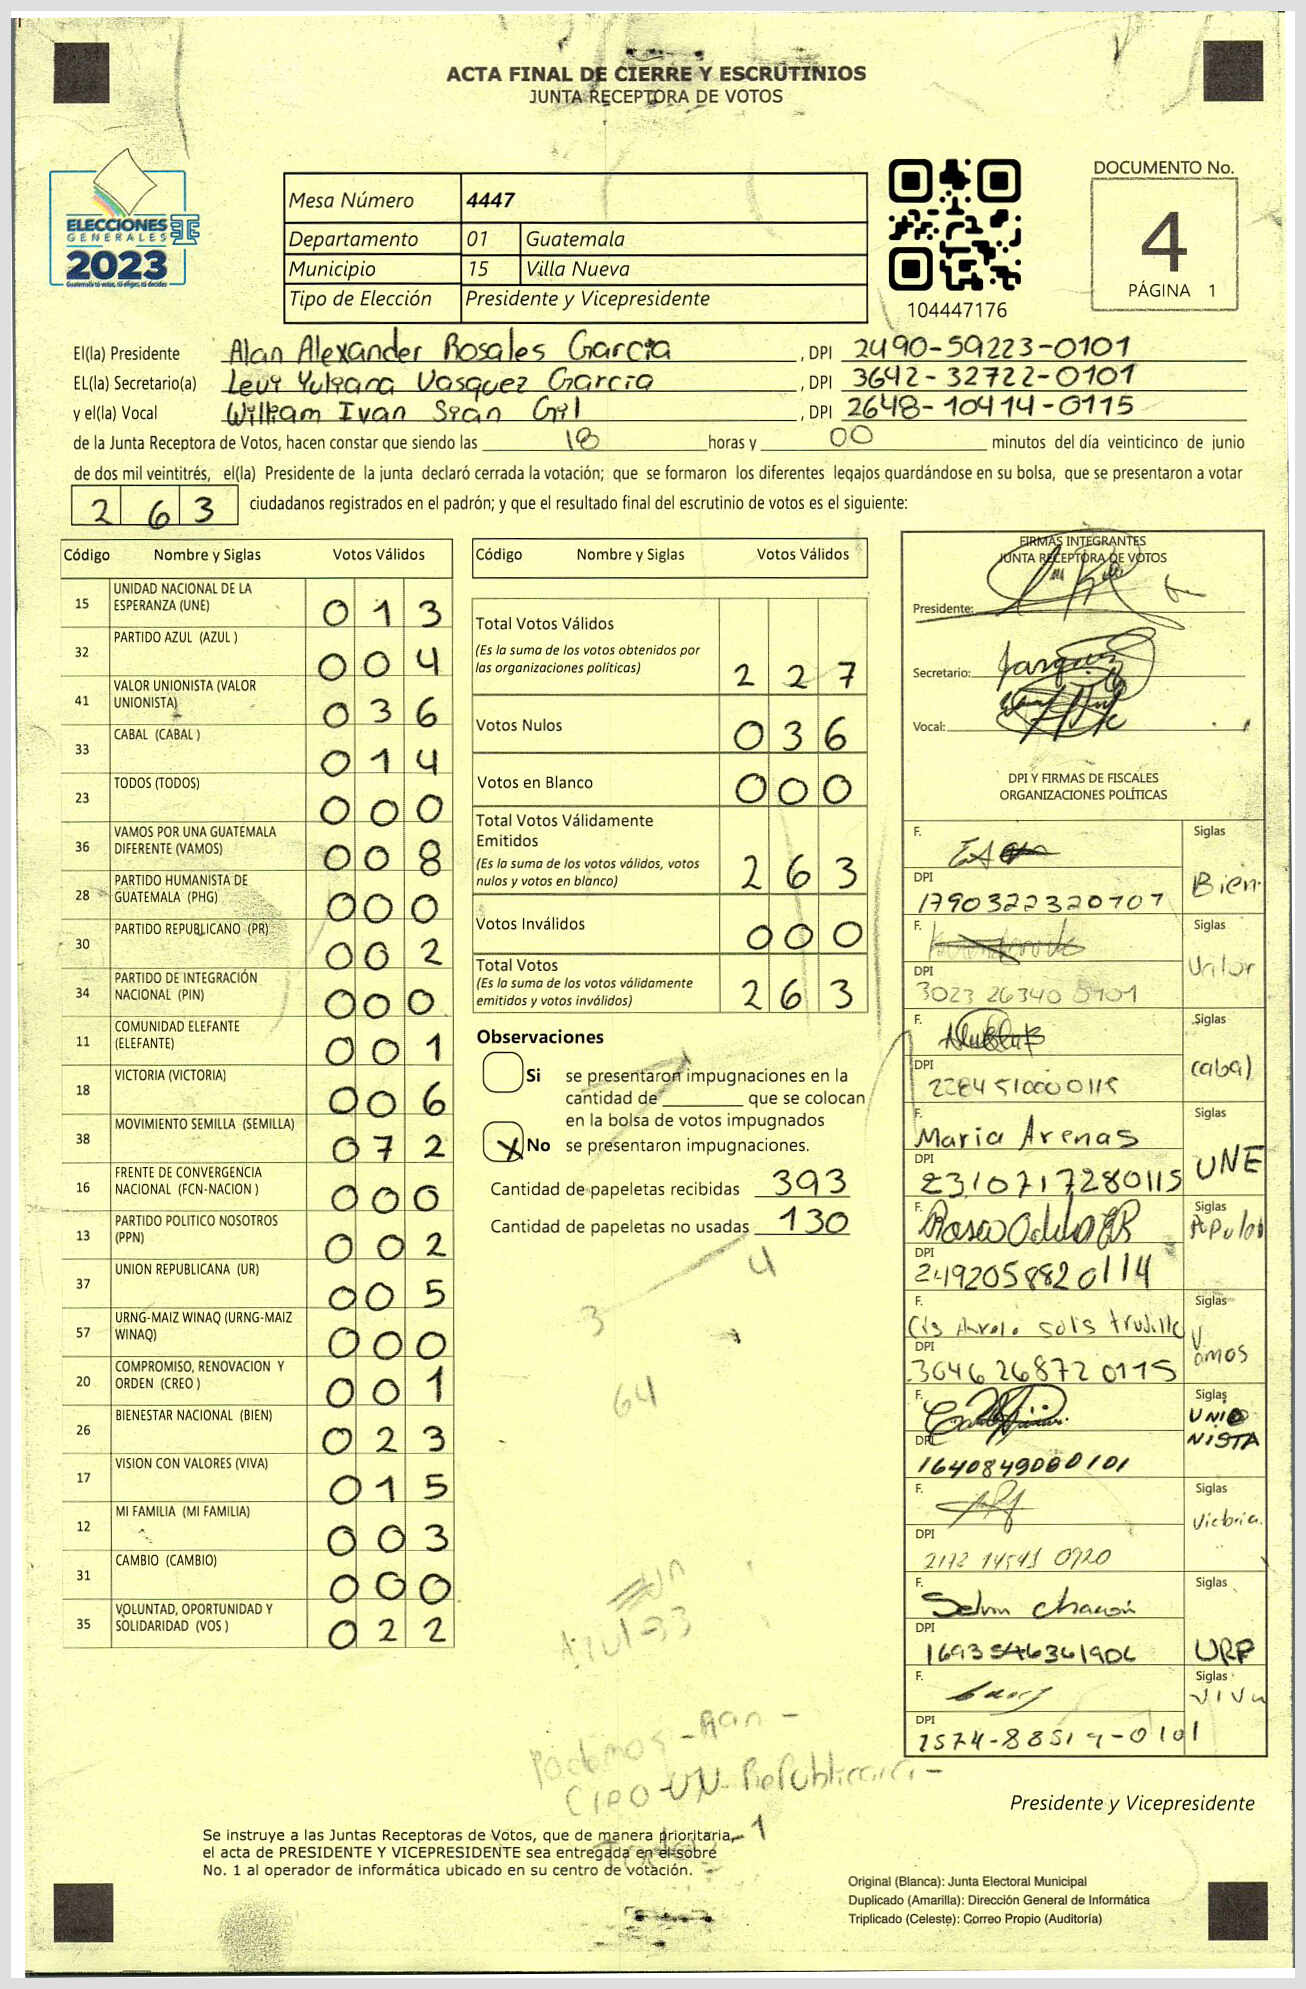 ACTA FINAL DE CIERRE Y ESCRUTINIOS
JUNTA RECEPTORA DE VOTOS
ELECCIONES
GENERALES
2023
Guatemala tú votas, tú eliges, tú decides
Mesa Número 4447
Departamento 01 Guatemala
Municipio 15 Villa Nueva
Tipo de Elección Presidente y Vicepresidente
104447176
DOCUMENTO No.
4
PÁGINA 1
El(la) Presidente Alan Alexander Rosales Garcia , DPI 2490-59223-0101
EL(la) Secretario(a) Levi Yuliana Vasquez Garcia , DPI 3642-32722-0101
y el(la) Vocal William Ivan Sian Gil , DPI 2648-10414-0115
de la Junta Receptora de Votos, hacen constar que siendo las 18 horas y 00 minutos del día veinticinco de junio
de dos mil veintitrés, el(la) Presidente de la junta declaró cerrada la votación; que se formaron los diferentes legajos guardándose en su bolsa, que se presentaron a votar
263 ciudadanos registrados en el padrón; y que el resultado final del escrutinio de votos es el siguiente:
Código Nombre y Siglas Votos Válidos
15 UNIDAD NACIONAL DE LA
ESPERANZA (UNE) 013
32 PARTIDO AZUL (AZUL ) 004
41 VALOR UNIONISTA (VALOR
UNIONISTA) 036
33 CABAL (CABAL ) 014
23 TODOS (TODOS) 000
36 VAMOS POR UNA GUATEMALA
DIFERENTE (VAMOS) 008
28 PARTIDO HUMANISTA DE
GUATEMALA (PHG) 000
30 PARTIDO REPUBLICANO (PR) 002
34 PARTIDO DE INTEGRACIÓN
NACIONAL (PIN) 000
11 COMUNIDAD ELEFANTE
(ELEFANTE) 001
18 VICTORIA (VICTORIA) 006
38 MOVIMIENTO SEMILLA (SEMILLA) 072
16 FRENTE DE CONVERGENCIA
NACIONAL (FCN-NACION ) 000
13 PARTIDO POLITICO NOSOTROS
(PPN) 002
37 UNION REPUBLICANA (UR) 005
57 URNG-MAIZ WINAQ (URNG-MAIZ
WINAQ) 000
20 COMPROMISO, RENOVACION Y
ORDEN (CREO ) 001
26 BIENESTAR NACIONAL (BIEN) 023
17 VISION CON VALORES (VIVA) 015
12 MI FAMILIA (MI FAMILIA) 003
31 CAMBIO (CAMBIO) 000
35 VOLUNTAD, OPORTUNIDAD Y
SOLIDARIDAD (VOS ) 022
Código Nombre y Siglas Votos Válidos
Total Votos Válidos
(Es la suma de los votos obtenidos por
las organizaciones políticas) 227
Votos Nulos 036
Votos en Blanco 000
Total Votos Válidamente
Emitidos
(Es la suma de los votos válidos, votos
nulos y votos en blanco) 263
Votos Inválidos 000
Total Votos
(Es la suma de los votos válidamente
emitidos y votos inválidos) 263
Observaciones
Si se presentaron impugnaciones en la
cantidad de ________ que se colocan
en la bolsa de votos impugnados
X No se presentaron impugnaciones.
Cantidad de papeletas recibidas 393
Cantidad de papeletas no usadas 130
4
3
64
Azul-33
Podemos -
-UN- Republicana-
-1
FIRMAS INTEGRANTES
JUNTA RECEPTORA DE VOTOS
Presidente:
Secretario:
Vocal:
DPI Y FIRMAS DE FISCALES
ORGANIZACIONES POLÍTICAS
F. Siglas
DPI Bien
1790322320707
F. Siglas
DPI Valor
3023 26340 0101
F. Siglas
DPI Cabal
2284 510000115
F. Siglas
Maria Arenas
DPI UNE
2310717280115
F. Siglas
Populo
DPI
2492058820114
F. Siglas
solis trujillo
DPI Vamos
3046268720115
F. Siglas
UNIO
NISTA
DPI
1640849080101
F. Siglas
Victoria.
DPI
2112 14541 0920
F. Siglas
Selvin Chacon
DPI URP
F. Siglas
VIVA
DPI
2574-88519-0101
Presidente y Vicepresidente
Se instruye a las Juntas Receptoras de Votos, que de manera prioritaria,
el acta de PRESIDENTE Y VICEPRESIDENTE sea entregada en el sobre
No. 1 al operador de informática ubicado en su centro de votación.
Original (Blanca): Junta Electoral Municipal
Duplicado (Amarilla): Dirección General de Informática
Triplicado (Celeste): Correo Propio (Auditoría)